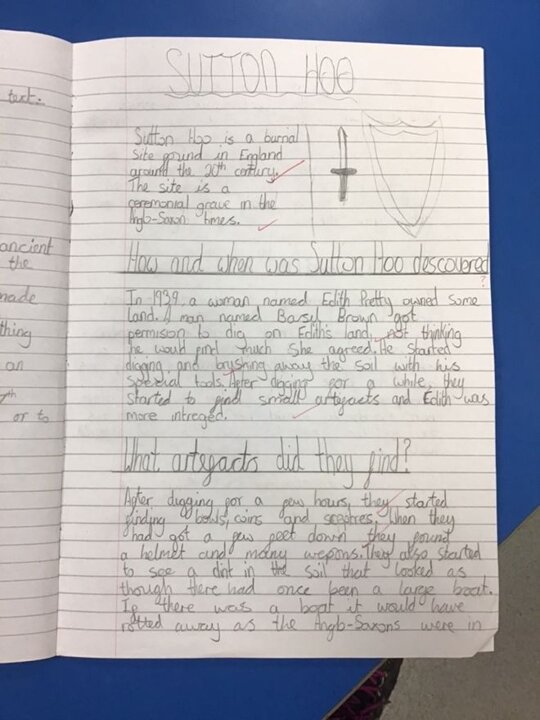 text.
ancient
the
made
thing
an
th
or to
SUTTON HOO
Sutton Hoo is a burial
site found in England
around the 20th century.
The site is a
ceremonial grave in the
Anglo-Saxon times.
How and when was Sutton Hoo descovered
?
In 1939, a woman named Edith Pretty owned some
land. A man named Basyl Brown got
permision to dig on Edith's land, not thinking
he would find much She agreed. He started
digging and brushing away the soil with his
special tools. After digging for a while, they
started to find small artefacts and Edith was
more intreged.
What artefacts did they find?
After digging for a few hours, they started
finding bowls, coins and sceptres. When they
had got a few feet down they found
a helmet and many wepons. They also started
to see a dint in the soil that looked as
though there had once been a large boat.
If there was a boat it would have
rotted away as the Anglo-Saxons were in